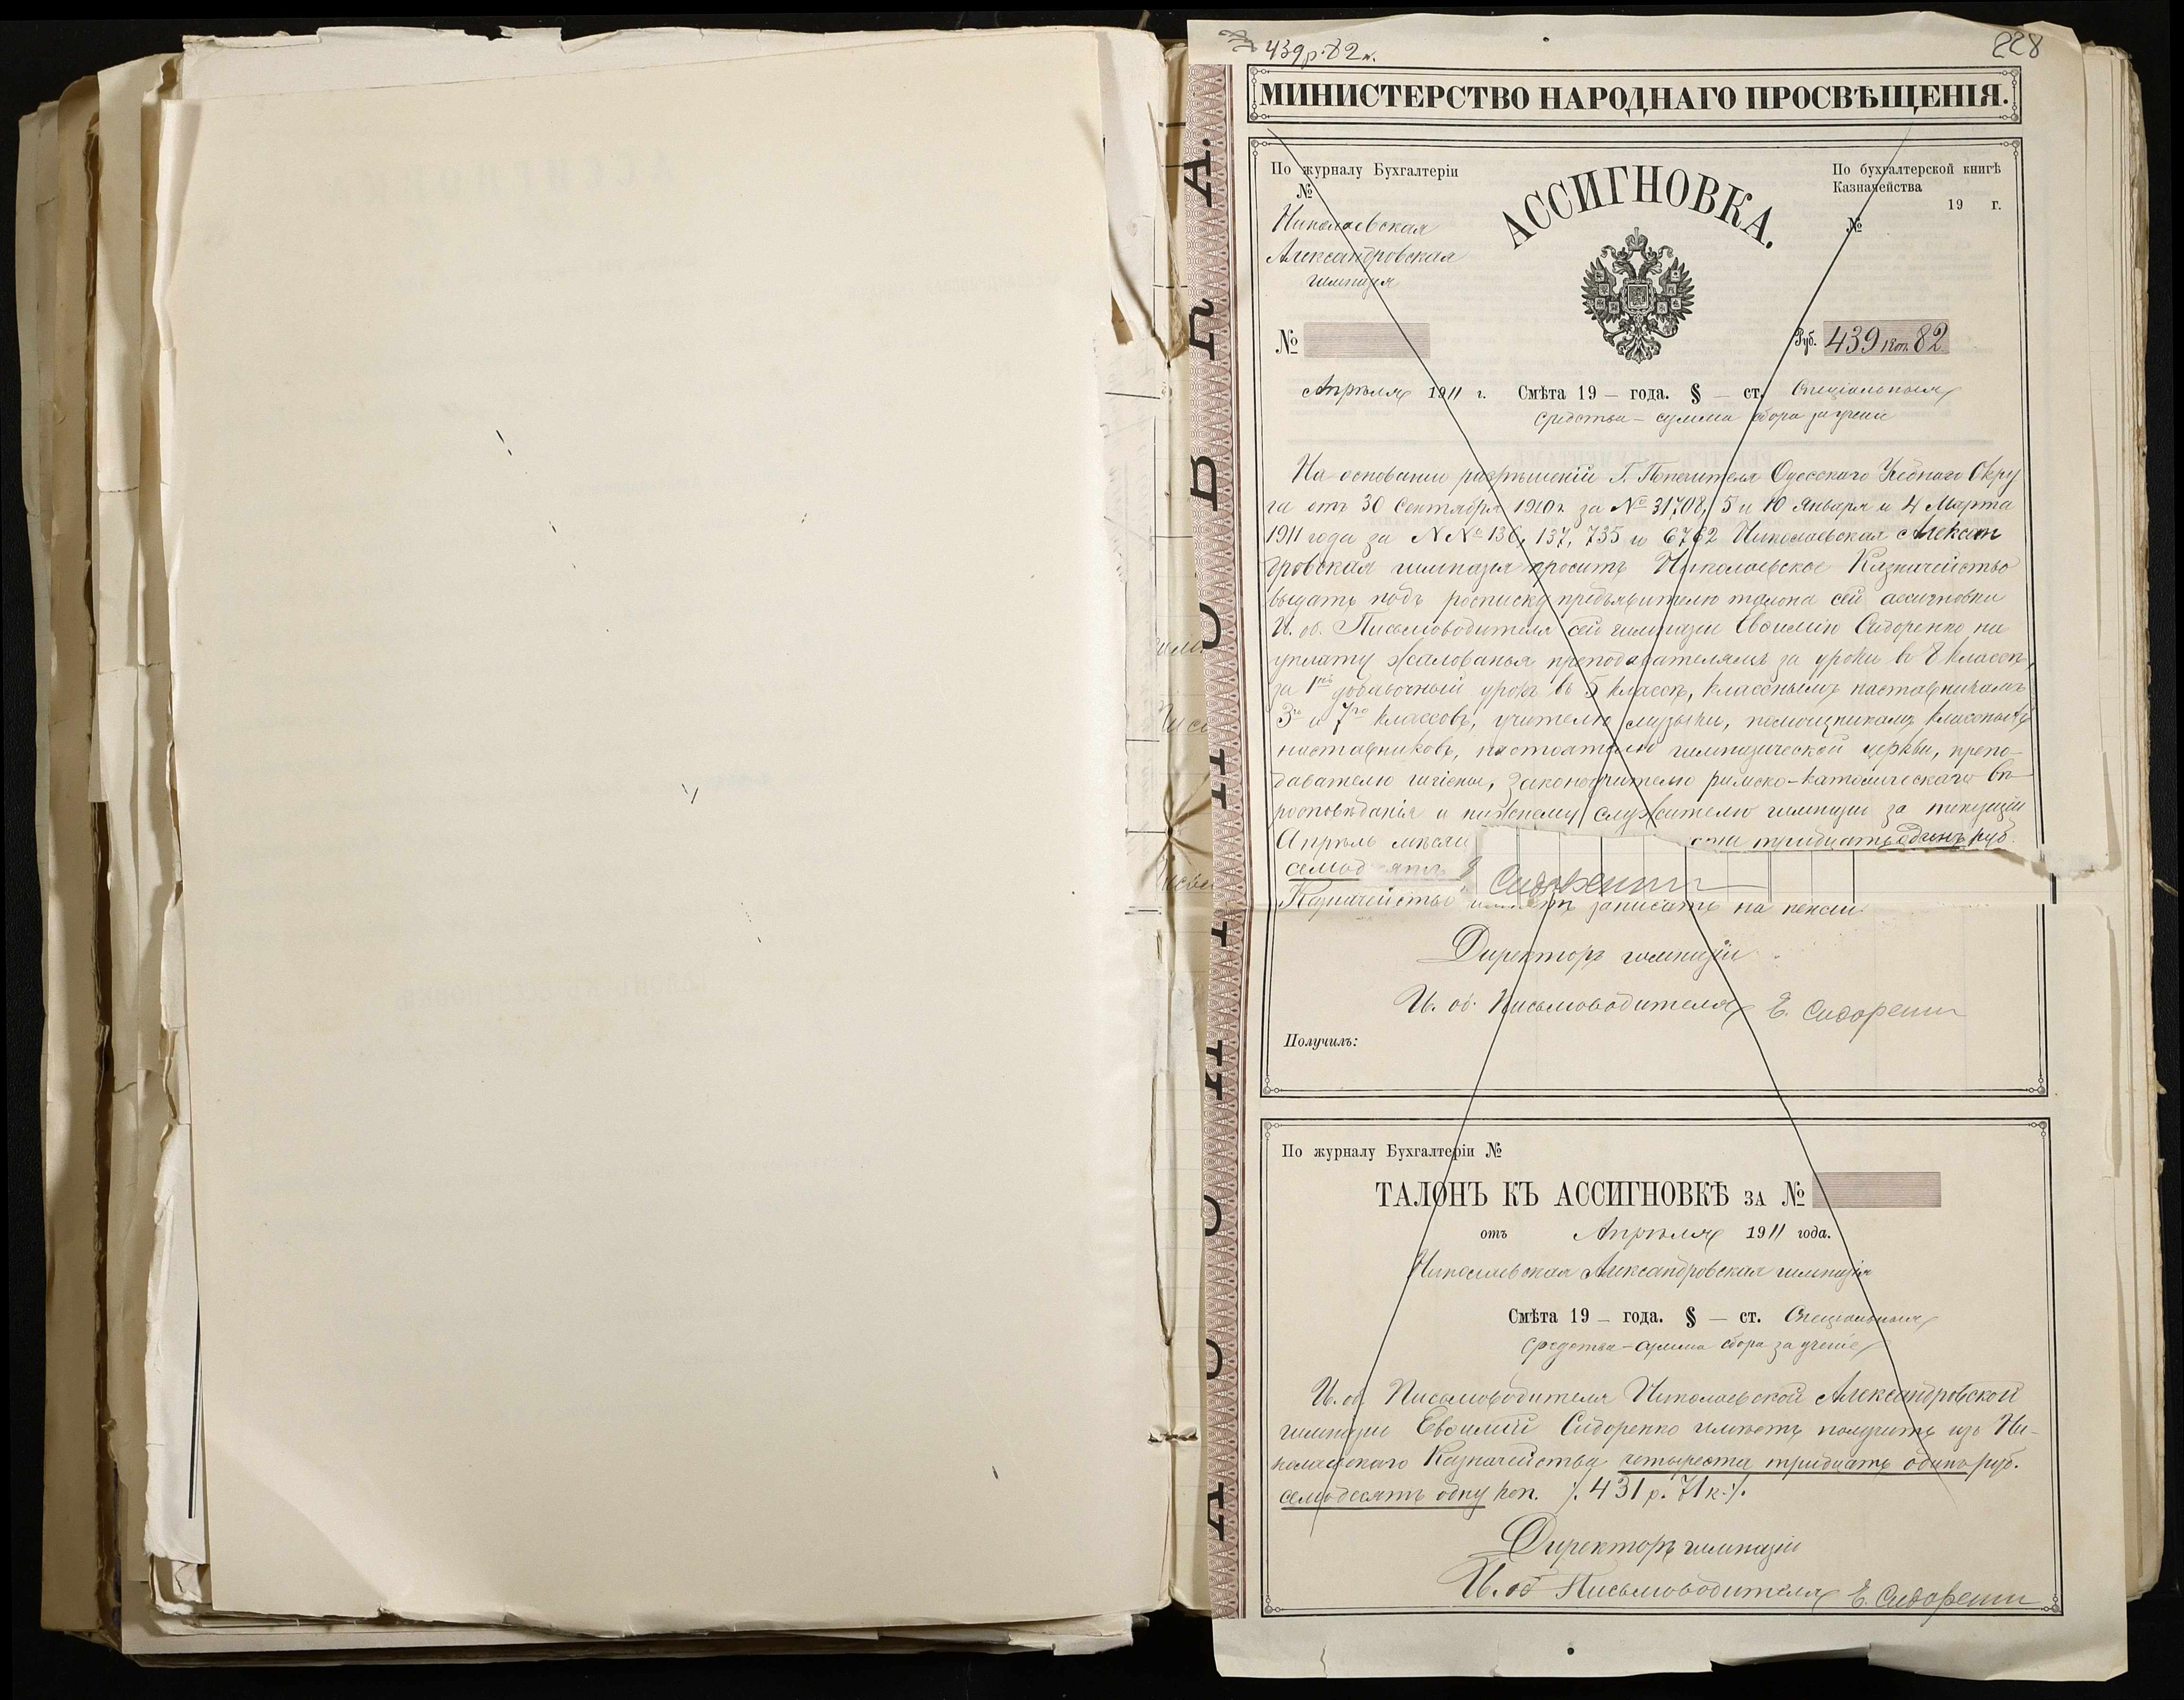 439 р. 82 к.
228
МИНИСТЕРСТВО НАРОДНАГО ПРОСВѢЩЕНІЯ.
По журналу Бухгалтеріи
№
Николаевская
Александровская
гимназія
АССИГНОВКА.
По бухгалтерской книгѣ
Казначейства
19 г.
№
№
Руб. 439 коп. 82
Апрѣля 1911 г. Смѣта 19 — года. § — ст. Спеціальныя
средства - сумма сбора за ученіе
На основаніи разрѣшеній Г. Попечителя Одесскаго Учебнаго Окру
га отъ 30 Сентября 1910 г. за № 31708, 5 и 10 Января и 4 Марта
1911 года за № № 136, 137, 735 и 6762 Николаевская Алексан
дровская гимназія проситъ Николаевское Казначейство
выдать подъ росписку предъявителю талона сей ассигновки
И. об. Письмоводителя сей гимназіи Евфимію Сидоренко на
уплату жалованья преподавателямъ за уроки въ 8 классѣ,
за 1й добавочный урокъ въ 5 классѣ, класснымъ наставникамъ
3го и 7го классовъ, учителю музыки, помощникамъ классныхъ
наставниковъ, настоятелю гимназической церкви, препо-
давателю гигіены, Законоучителю римско-католическаго вѣ
роисповѣданія и нижнему служителю гимназіи за текущій
Апрѣль мѣсяц ста тридцать одинъ руб.
семьдесятъ
Сидоренко
Казначейство имѣетъ записать на пенсіи.
Директоръ гимназіи
И. об. Письмоводителя Е. Сидоренко
Получилъ:
По журналу Бухгалтеріи №
ТАЛОНЪ КЪ АССИГНОВКѢ ЗА №
отъ Апрѣля 1911 года.
Николаевская Александровская гимназія
Смѣта 19 — года. § — ст. Спеціальныя
средства - сумма сбора за ученіе
И. об. Письмоводителя Николаевской Александровской
гимназіи Евфимій Сидоренко имѣетъ получить изъ Ни-
колаевскаго Казначейства четыреста тридцать одинъ руб.
семьдесятъ одну коп. /. 431 р. 71 к. /.
Директоръ гимназіи
И. об Письмоводителя Е. Сидоренко
АССИГНОВКА.